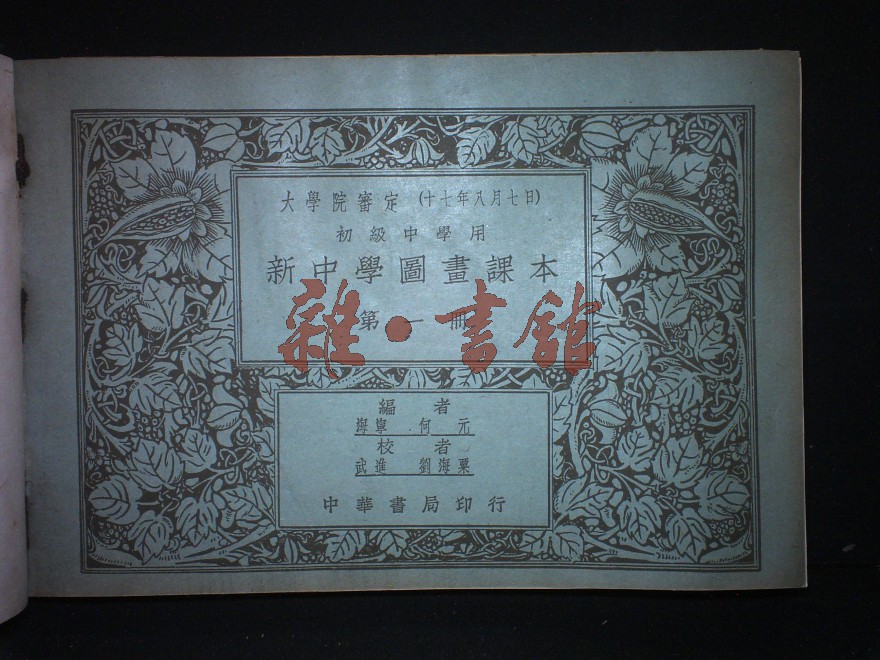 大學院審定 (十七年八月七日)
初級中學用
新中學圖畫課本
第一冊
雜·書館
編者
海寧 何元
校者
武進 劉海粟
中華書局印行